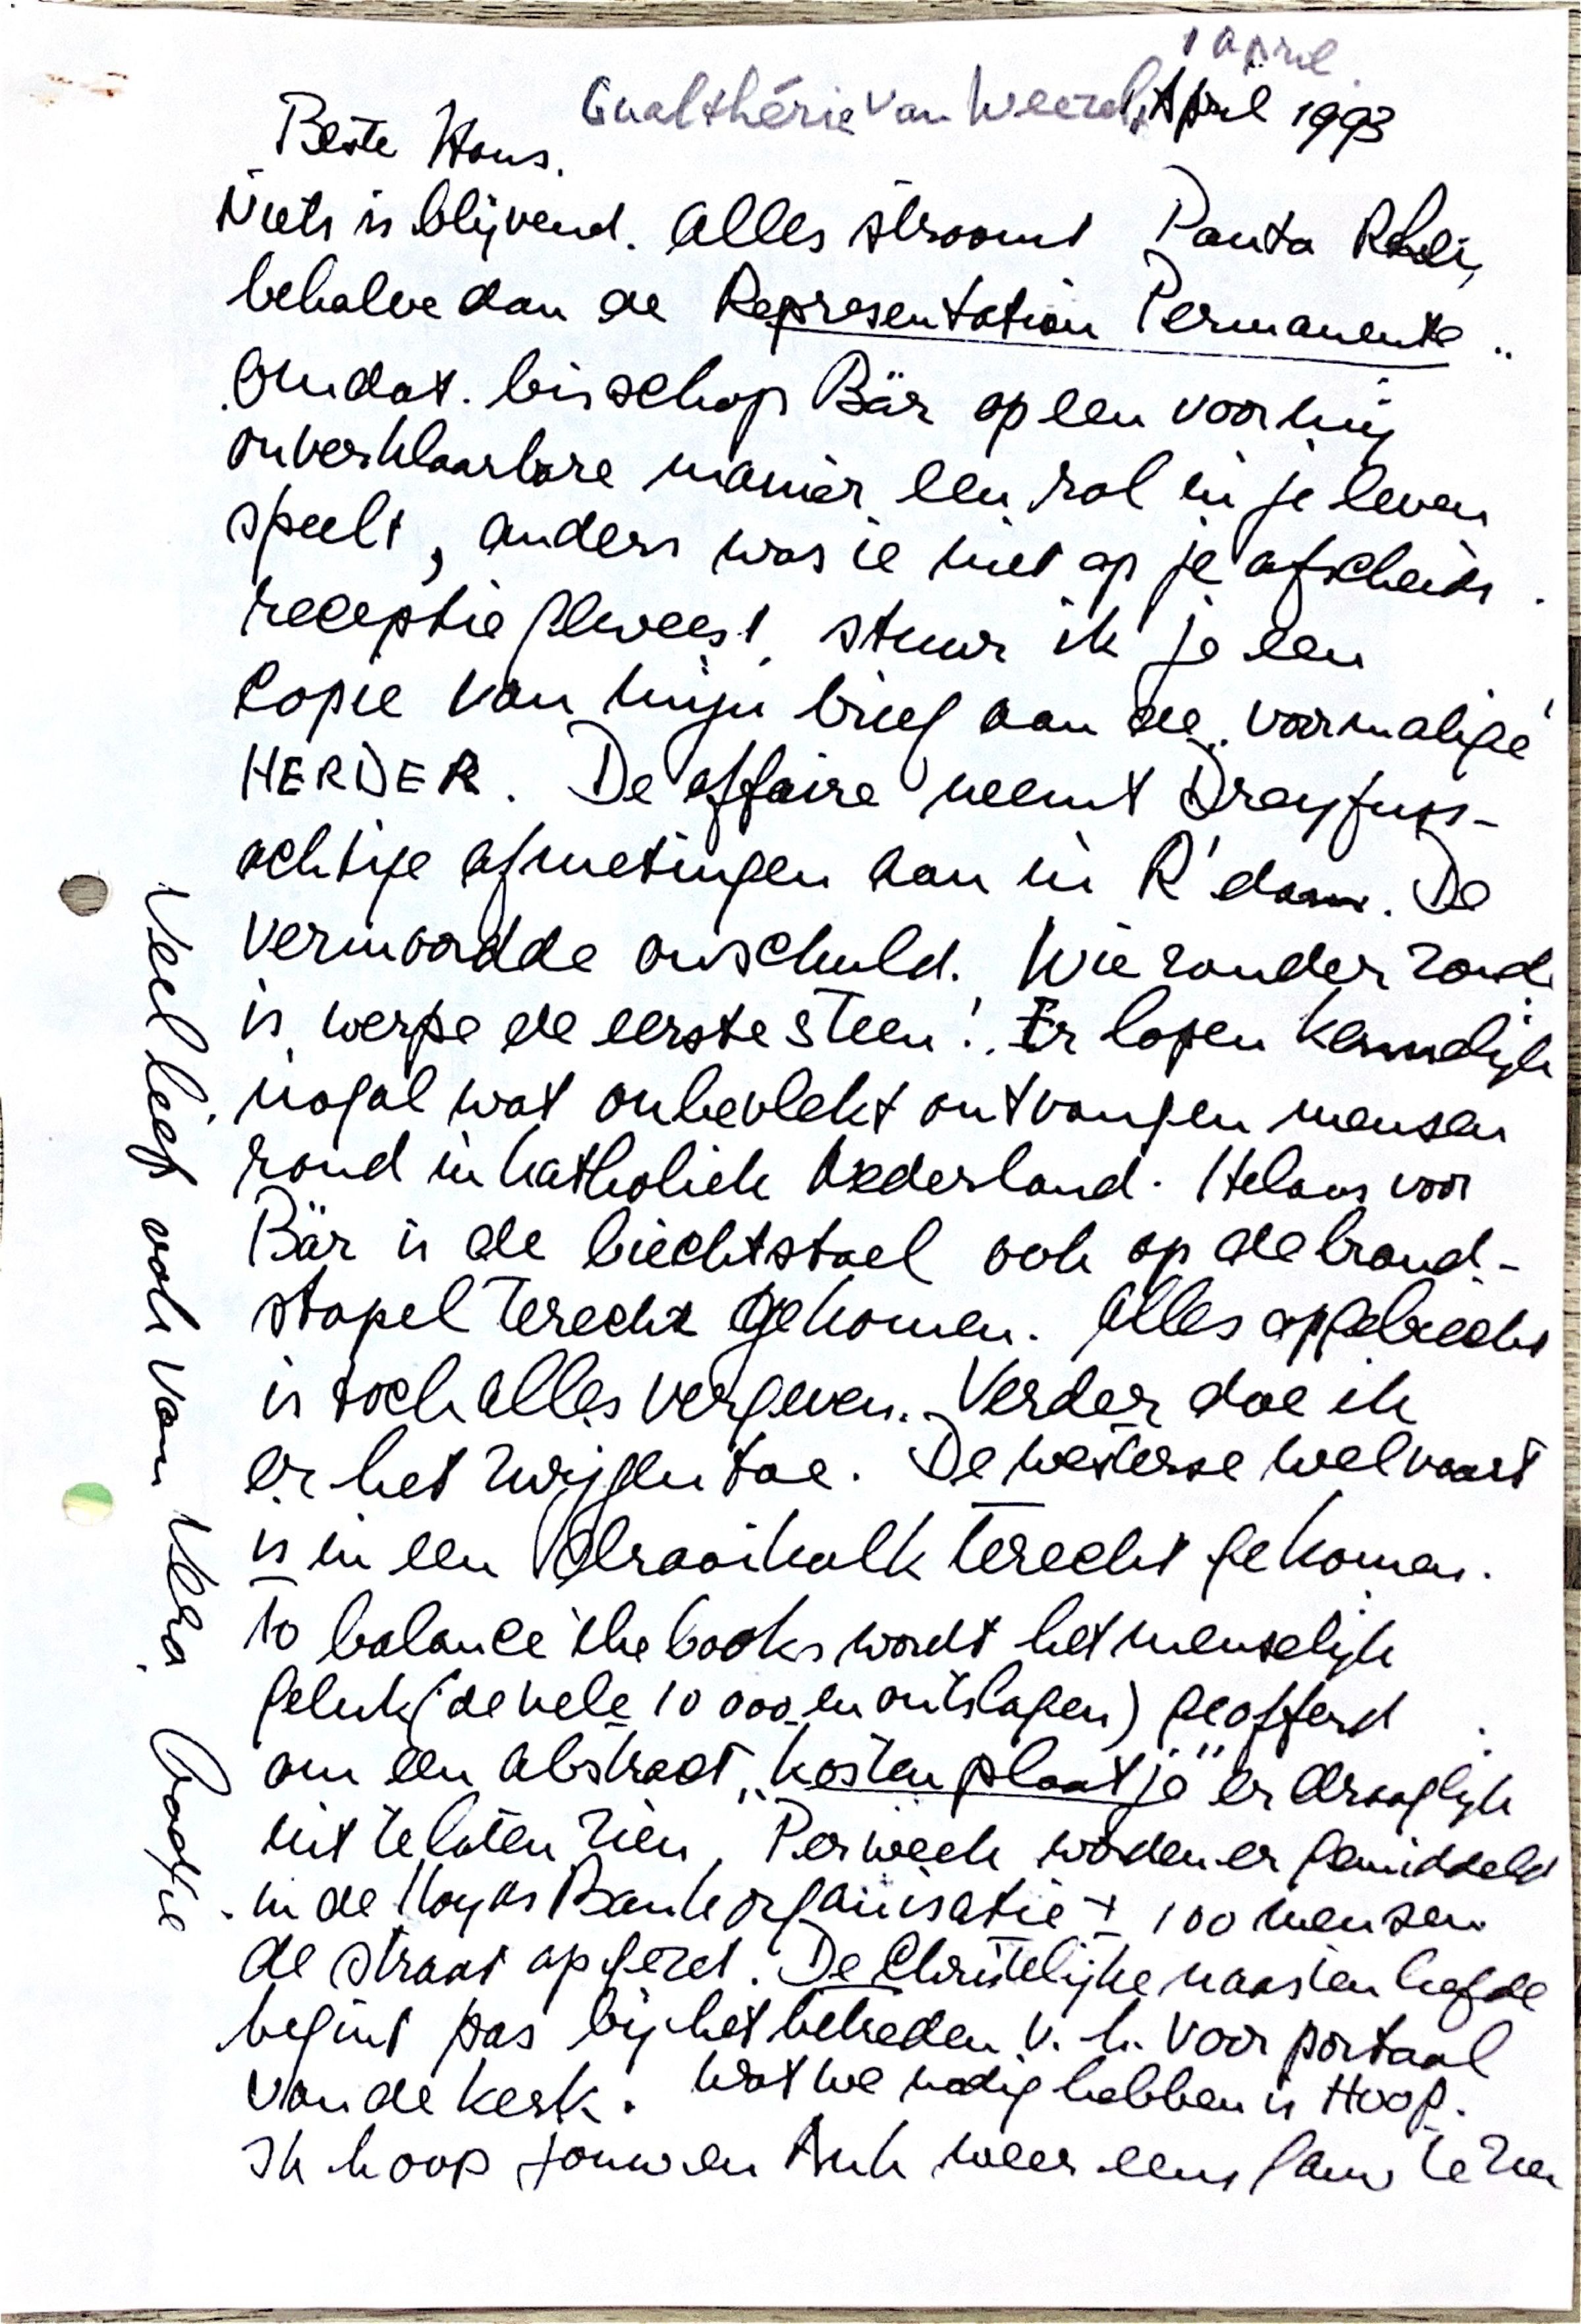 1 april
Gualthérie van Weezel, April 1993
Beste Hans.
Niets is blijvend. Alles stroomt Panta Rhei,
behalve dan de Representation Permanente ..
Omdat bisschop Bär op een voor mij
onverklaarbare manier een rol in je leven
speelt, anders was ie niet op je afscheids
receptie geweest, stuur ik je een
copie van mijn brief aan de "voormalige"
HERDER. De affaire neemt Dreyfuss-
achtige afmetingen aan in R'dam. De
vermoordde onschuld. Wie zonder zonde
is werpe de eerste steen! Er lopen kennelijk
nogal wat onbevlekt ontvangen mensen
rond in katholiek Nederland. Helaas voor
Bär is de biechtstoel ook op de brand-
stapel terecht gekomen. Alles opgebiecht
is toch alles vergeven. Verder doe ik
er het zwijgen toe. De westerse welvaart
is in een draaikolk terecht gekomen.
To balance the books wordt het menselijk
geluk (de vele 10 000 en ontslagen) geofferd
om een abstract "kostenplaatje" er draaglijk
uit te laten zien, Per week worden er gemiddeld
in de Bank organisatie ± 100 mensen
de straat op gezet. De Christelijke naastenliefde
begint pas bij het betreden v. h. voor portaal
van de kerk. Wat we nodig hebben is Hoop.
Ik hoop jou en Ank weer eens gauw te zien
Veel liefs ook van Vera